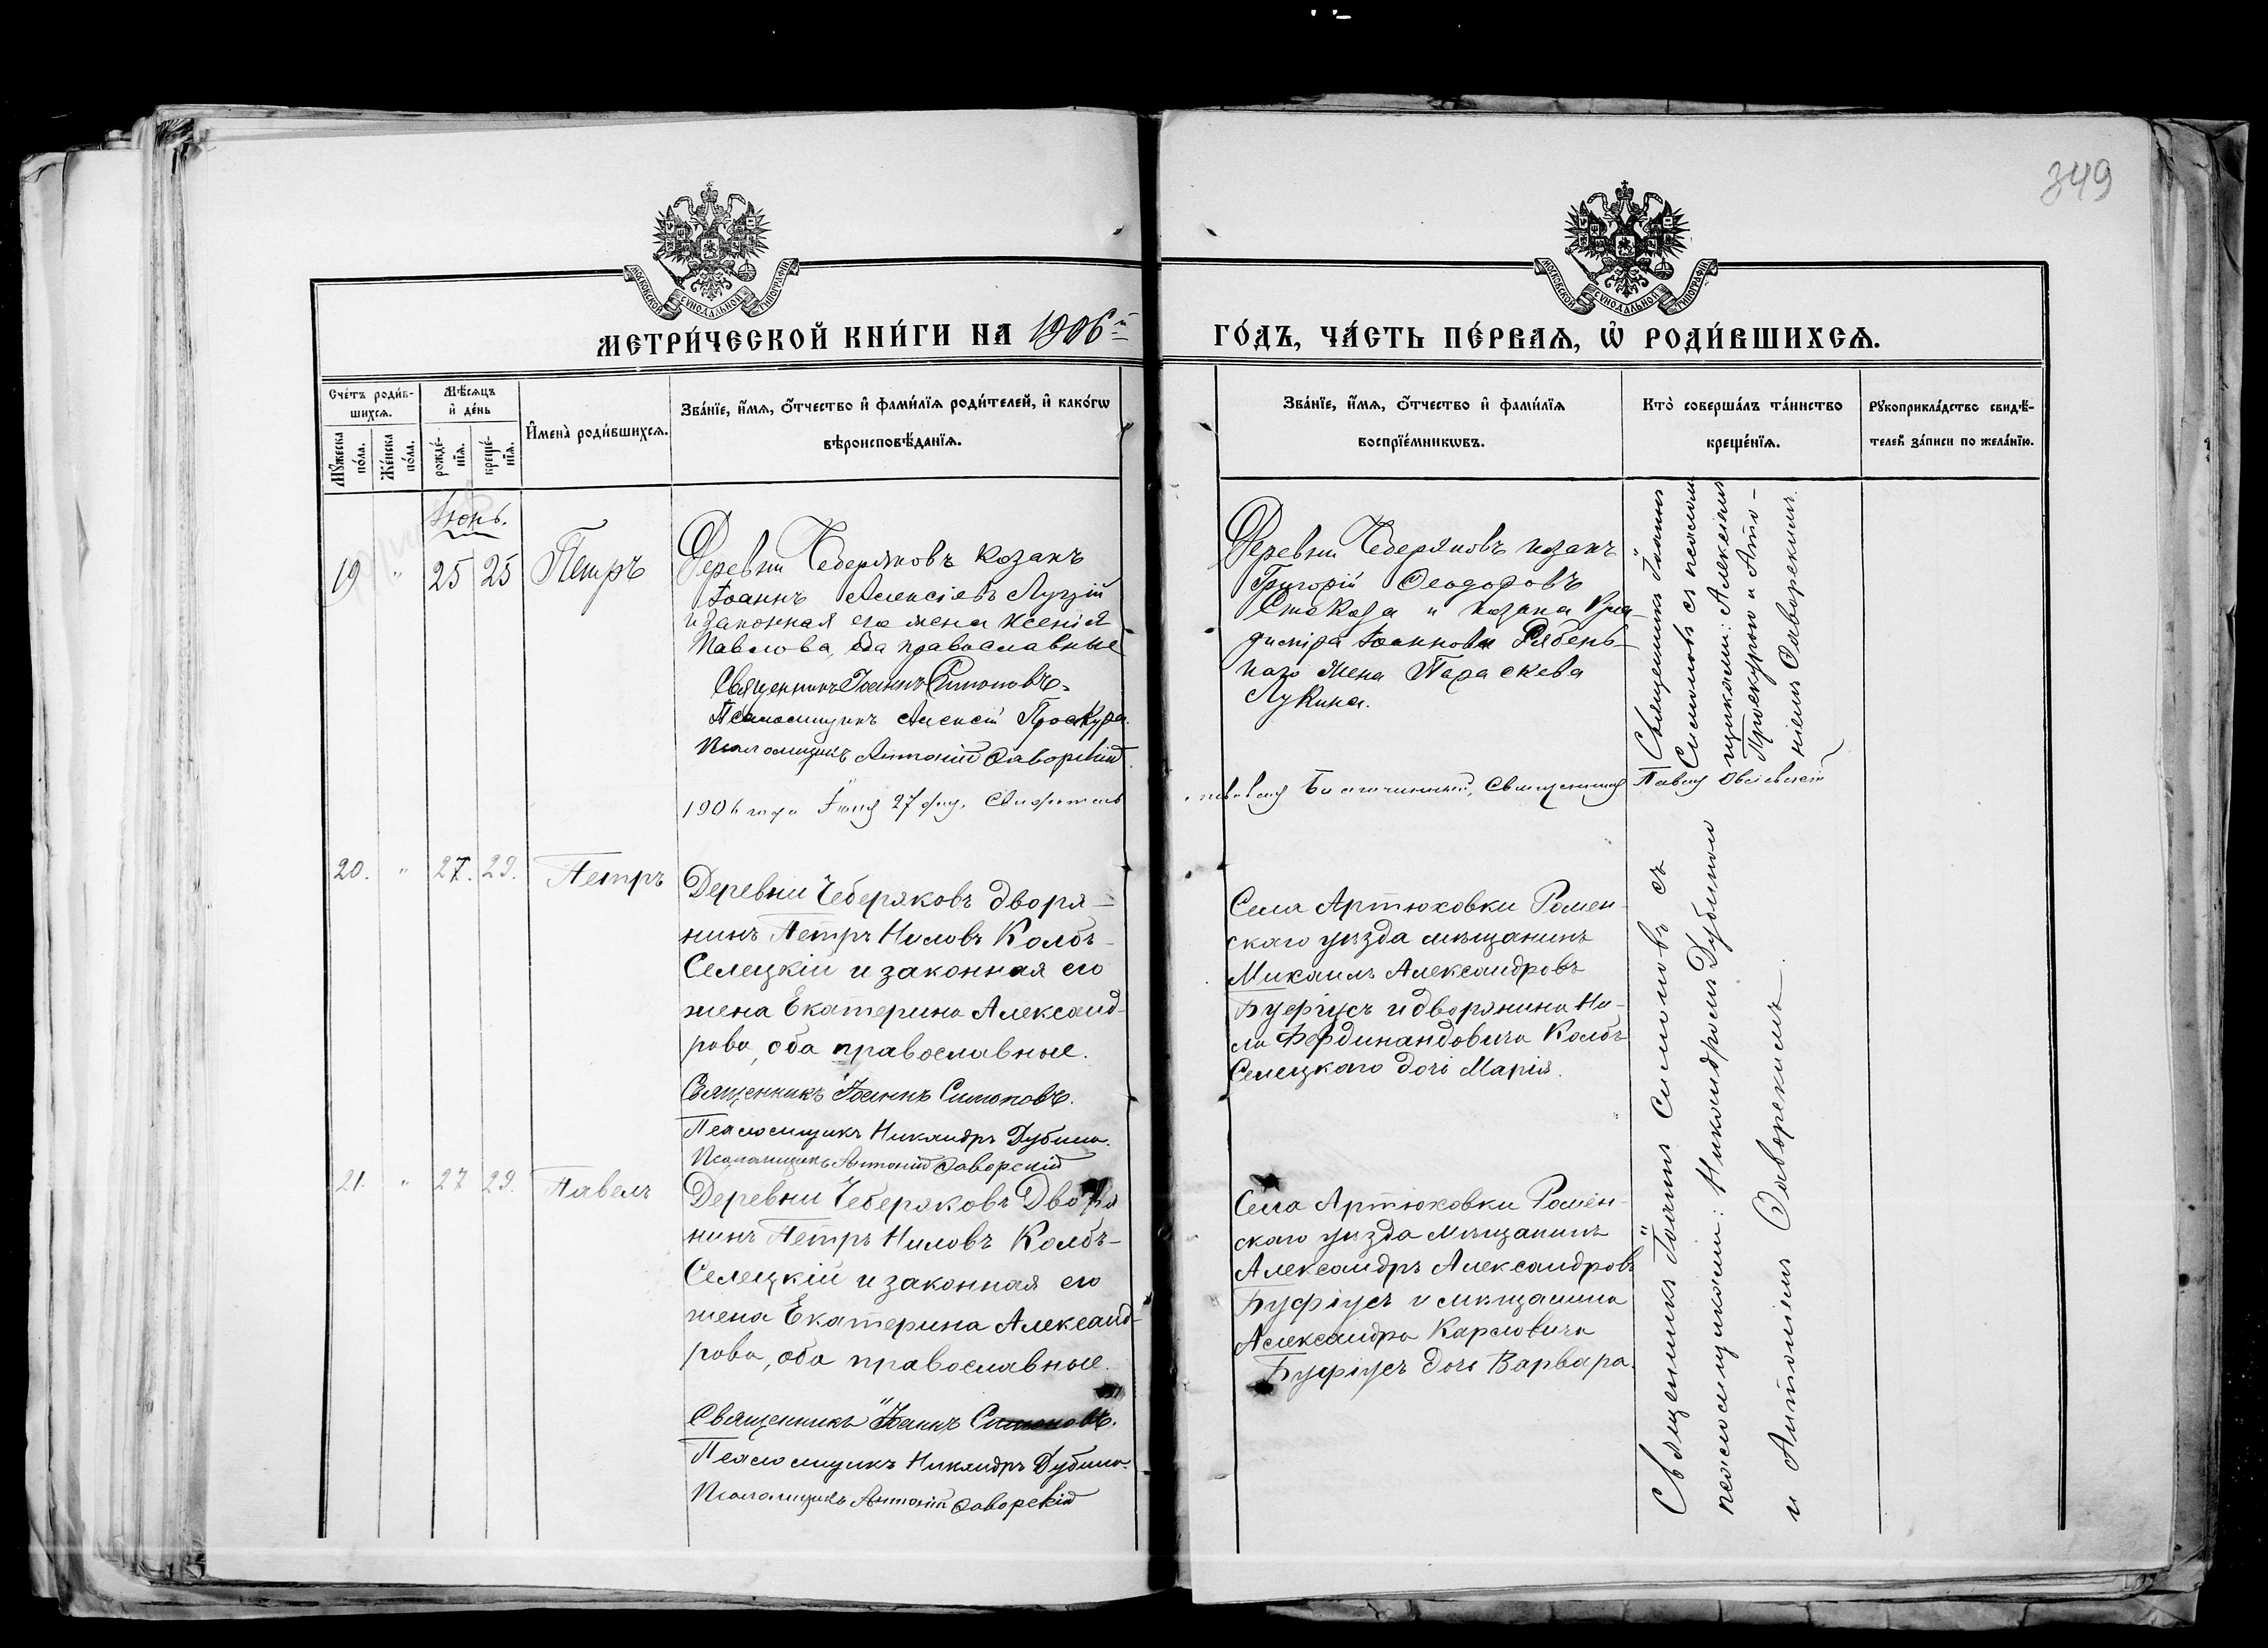 349
МОСКОВСКОЙ СУНОДАЛЬНОЙ ТИПОГРАФІИ
МОСКОВСКОЙ СУНОДАЛЬНОЙ ТИПОГРАФІИ
МЕТРИ́ЧЕСКОЙ КНИ́ГИ НА 1906й
ГО́ДЪ, ЧА́СТЬ ПЕ́РВАѦ, Ѡ҆ РОДИ́ВШИХСѦ.
Сче́тъ роди́в-
шихсѧ.
Мѹ́жеска
по́ла.
Же́нска
по́ла.
Мѣ́сѧцъ
и҆ де́нь
рожде́-
нїѧ.
креще́-
нїѧ.
И҆мена̀ роди́вшихсѧ.
Зва́нїе, и҆́мѧ, ѻ҆́тчество и҆ фами́лїѧ роди́телей, и҆ како́гѡ
вѣроисповѣ́данїѧ.
Зва́нїе, и҆́мѧ, ѻ҆́тчество и҆ фами́лїѧ
воспрїе́мникѡвъ.
Кто̀ соверша́лъ та́инство
креще́нїѧ.
Рѹкоприкла́дство свидѣ́-
телей за́писи по жела́нїю.
Іюнь.
19 " 25 25 Петръ
Деревни Чеберяковъ козакъ
Іоаннъ Алексіевъ Луцкій
и законная его жена Ксенія
Павлова, оба православные
Священникъ Іоаннъ Симоновъ.
Псаломщикъ Алексій Проскура.
Псаломщикъ Антоній Яворскій.
Деревни Чеберяковъ козакъ
Григорій Ѳеодоровъ
Стокоза и козака Вла-
диміра Іоаннова Рябень-
каго жена Параскева
Лукина.
Священникъ Іоаннъ
Симоновъ съ псалом-
щиками: Алексіемъ
Проскурою и Анто-
ніемъ Яворскимъ.
1906 года Іюня 27 дня. Свидѣтель-
Благочинный, Священникъ Павелъ
20. " 27. 29. Петръ
Деревни Чеберяковъ дворя-
нинъ Петръ Ниловъ Колбъ-
Селецкій и законная его
жена Екатерина Александ-
рова, оба православные.
Священникъ Іоаннъ Симоновъ.
Псаломщикъ Никандръ Дубина.
Псаломщикъ Антоній Яворскій
Села Артюховки Ромен-
скаго уѣзда мѣщанинъ
Михаилъ Александровъ
Буфіусъ и дворянина Ни-
ла Фердинандовича Колбъ-
Селецкаго дочь Марія.
Священникъ Іоаннъ Симоновъ съ
псаломщиками: Никандромъ Дубиною
и Антоніемъ Яворскимъ.
21. " 27 29. Павелъ
Деревни Чеберяковъ Дворя
нинъ Петръ Ниловъ Колбъ-
Селецкій и законная его
жена Екатерина Александ-
рова, оба православные.
Священникъ Іоаннъ Симоновъ.
Псаломщикъ Никандръ Дубина.
Псаломщикъ Антоній Яворскій
Села Артюховки Ромен-
скаго уѣзда мѣщанинъ
Александръ Александровъ
Буфіусъ и мѣщанина
Александра Карловича
Буфіусъ дочь Варвара.